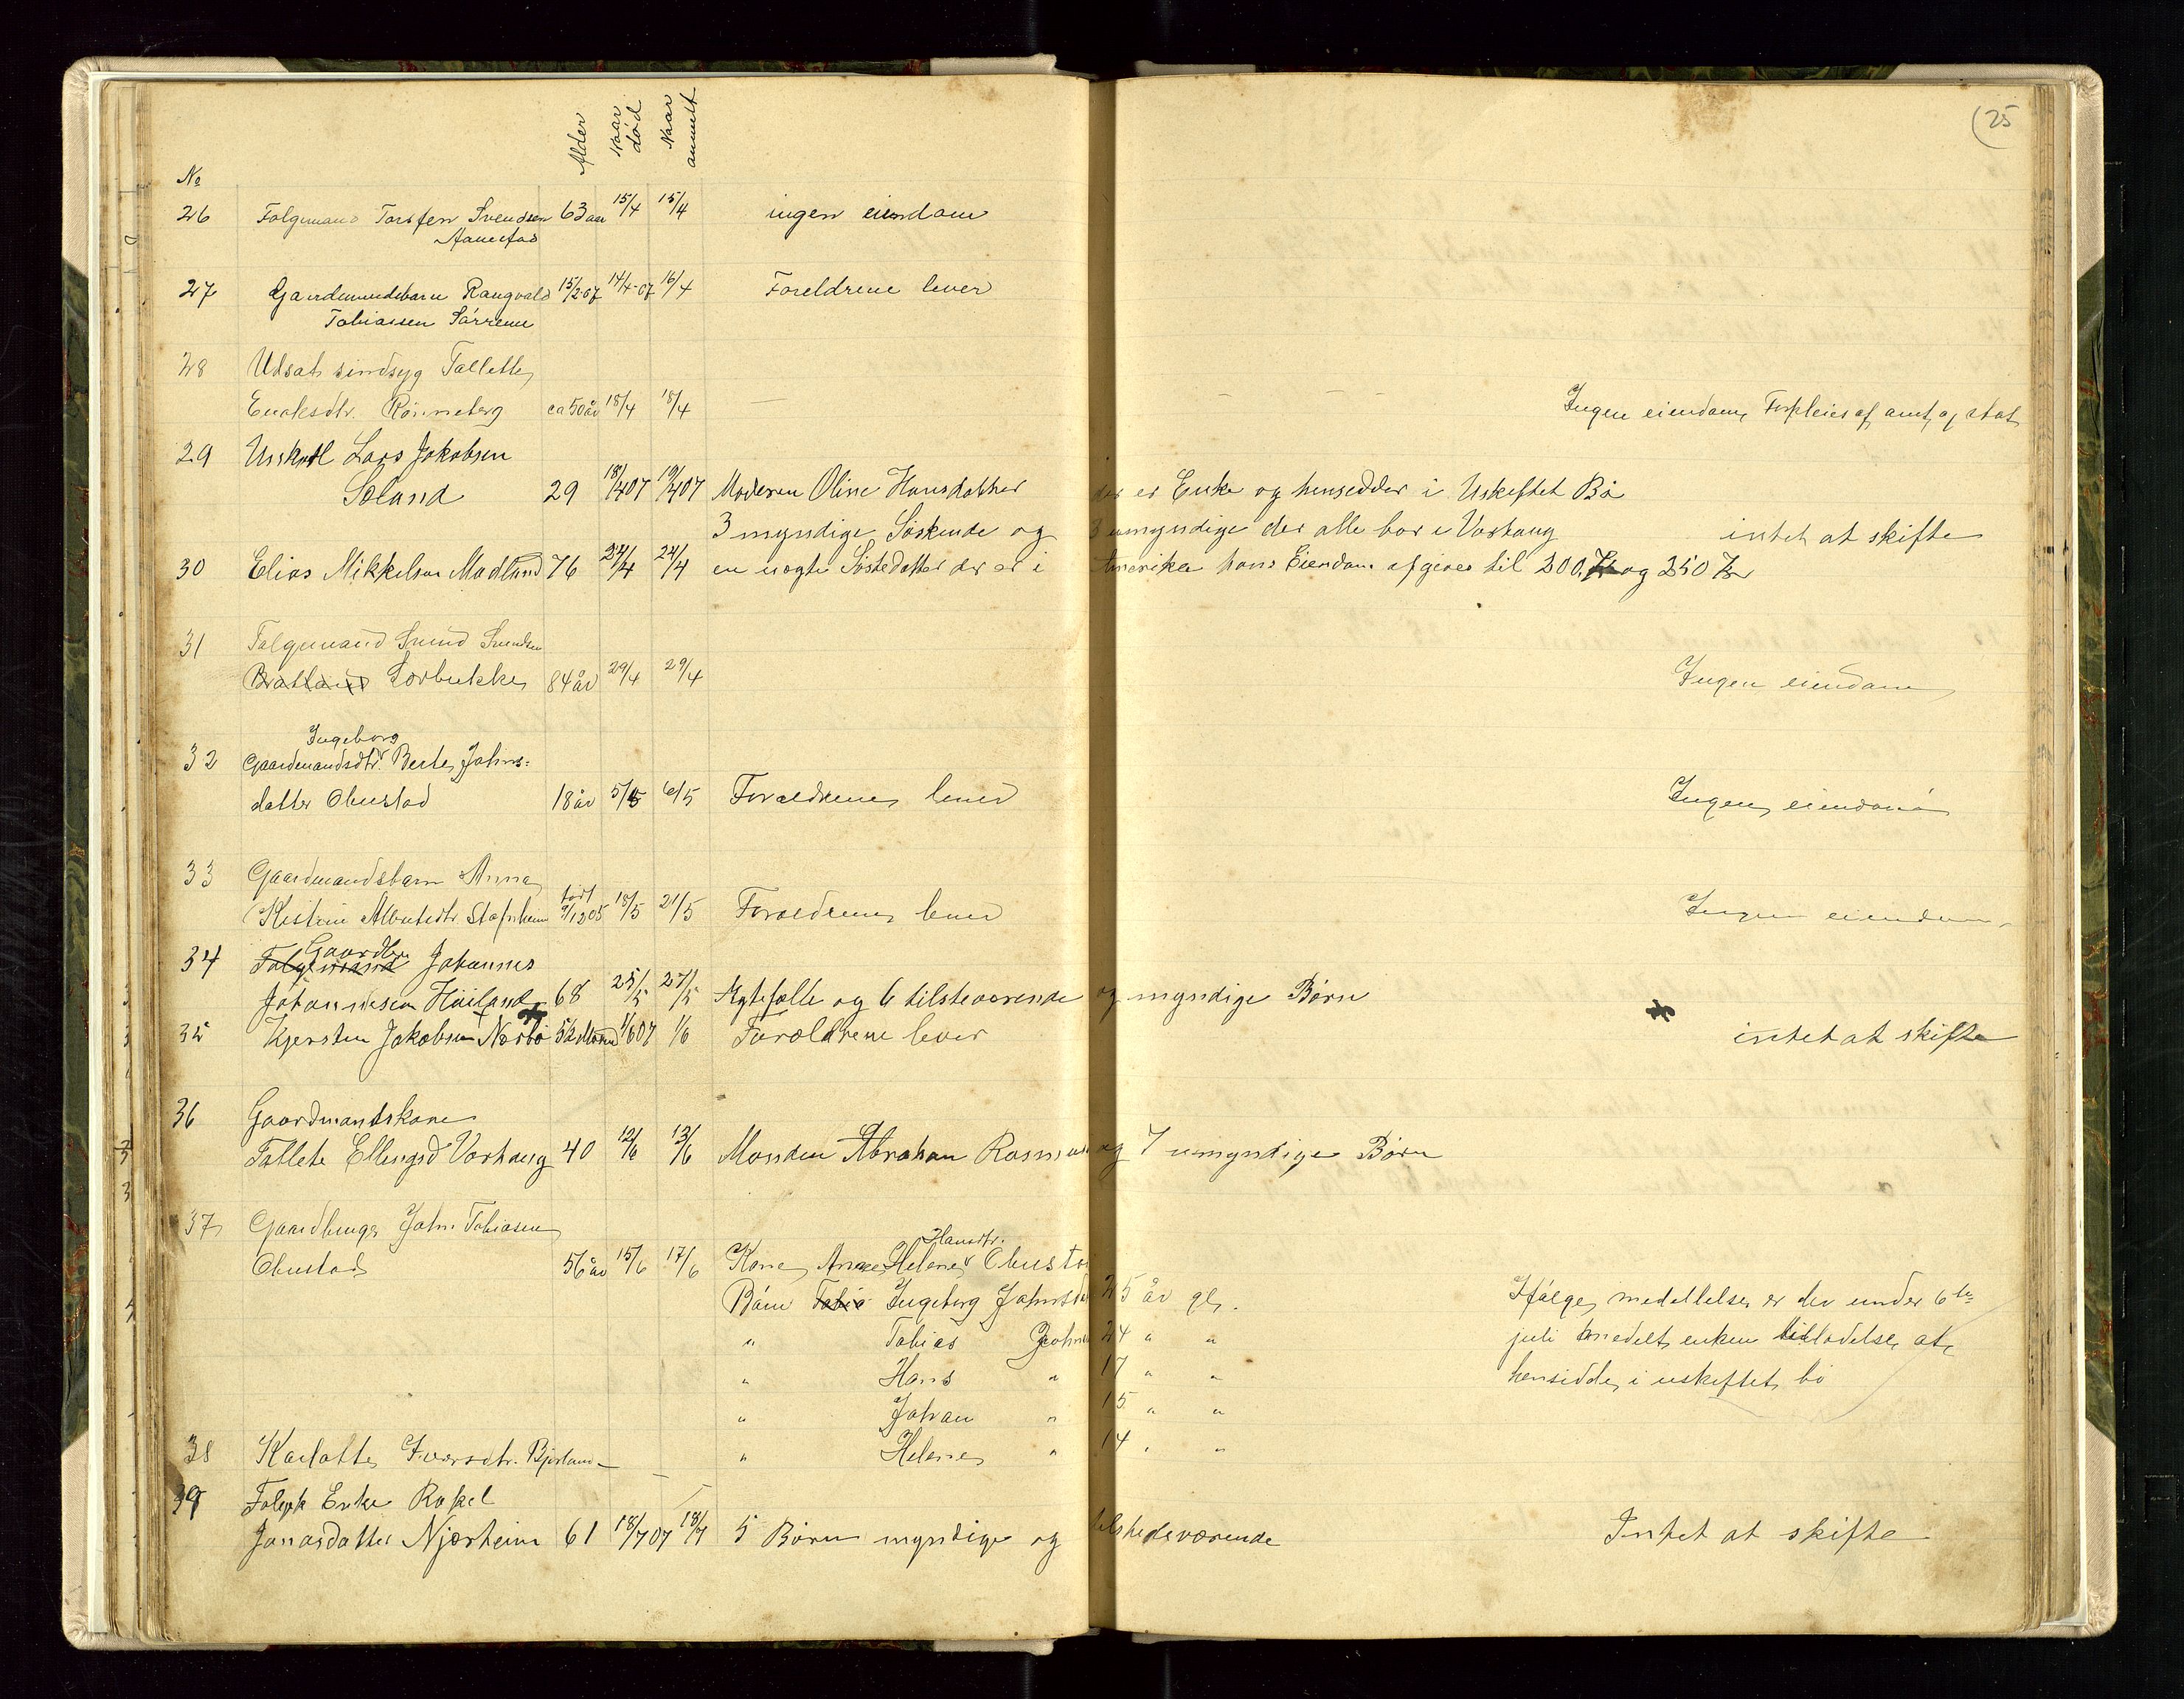 (25
No Alder Naar død Naar anmelt
26 Folgemand Torsten Svendsen 63 aar 15/4 15/4 ingen eiendom
Aanestad
27 Gaardmandsbarn Rangvald 15/2-07 14/4-07 16/4 Foreldrene lever
Tobiassen
28 Udsat sindsyg Tallette
Enoksdtr. Rönneberg ca 50 år 18/4 18/4 — – – Ingen eiendom, Forpleies af amt og stat
29 Lars Jakobsen
Söland 29 18/4 07 19/4 07 Moderen Oline Hansdatter der er Enke og hensedder i Uskeftet Bo
3 myndige Söskende og 3 umyndige der alle bor i Varhaug intet at skifte
30 Elias Mikkelsen Madland 76 24/4 24/4 en Söstedatter der er i Amerika hans Eiendom afgives til 200 Kr og 250 Kr
31 Folgemand Svend Svendsen
Bratland Lorbukke 84 år 29/4 29/4 Ingen eiendom
Ingeborg
32 Gaardmandsdtr. Berte Johns-
datter Obustad 18 år 5/5 6/5 Foraeldrene lever Ingen eiendom
33 Gaardmandsbarn Anna
født
Kistine Albertsdtr. Stafnheim 9/12 05 18/5 21/5 Foraeldrene lever Ingen eiendom
Gaardbr
34 Folgemand Johannes
Johannesen Höiland 68 25/5 27/5 Ægtefælle og 6 tilsteværende og myndige Börn
35 Kjersten Jakobsen Närbö 1/6 07 1/6 Foræeldrene lever intet at skifte
36 Gaardmandskone
Tallete Ellingsd Varhaug 40 12/6 13/6 Manden Abraham Rasmus og 7 umyndige Börn
37 Gaardbruger John Tobiasen
Hansdtr.
Obustad 56 år 15/6 17/6 Kone Anne Helene Obusta
Börn Tobia Ingeborg Johnsda 25 år gl. Ifölge meddellelse er der under 6te
" Tobias John 24 " " juli meddelt enken tilladelse at
" Hans " 17 " " hensidde i uskeftet bo
" Johan " 15 " "
38 Karlotte Iversdtr. Bjorland — " Helene " 14 " "
39 Folgek Enke Rakel
Jonasdatter Njærheim 61 18/7 07 18/7 5 Börn myndige og tilstedeværende Intet at skifte